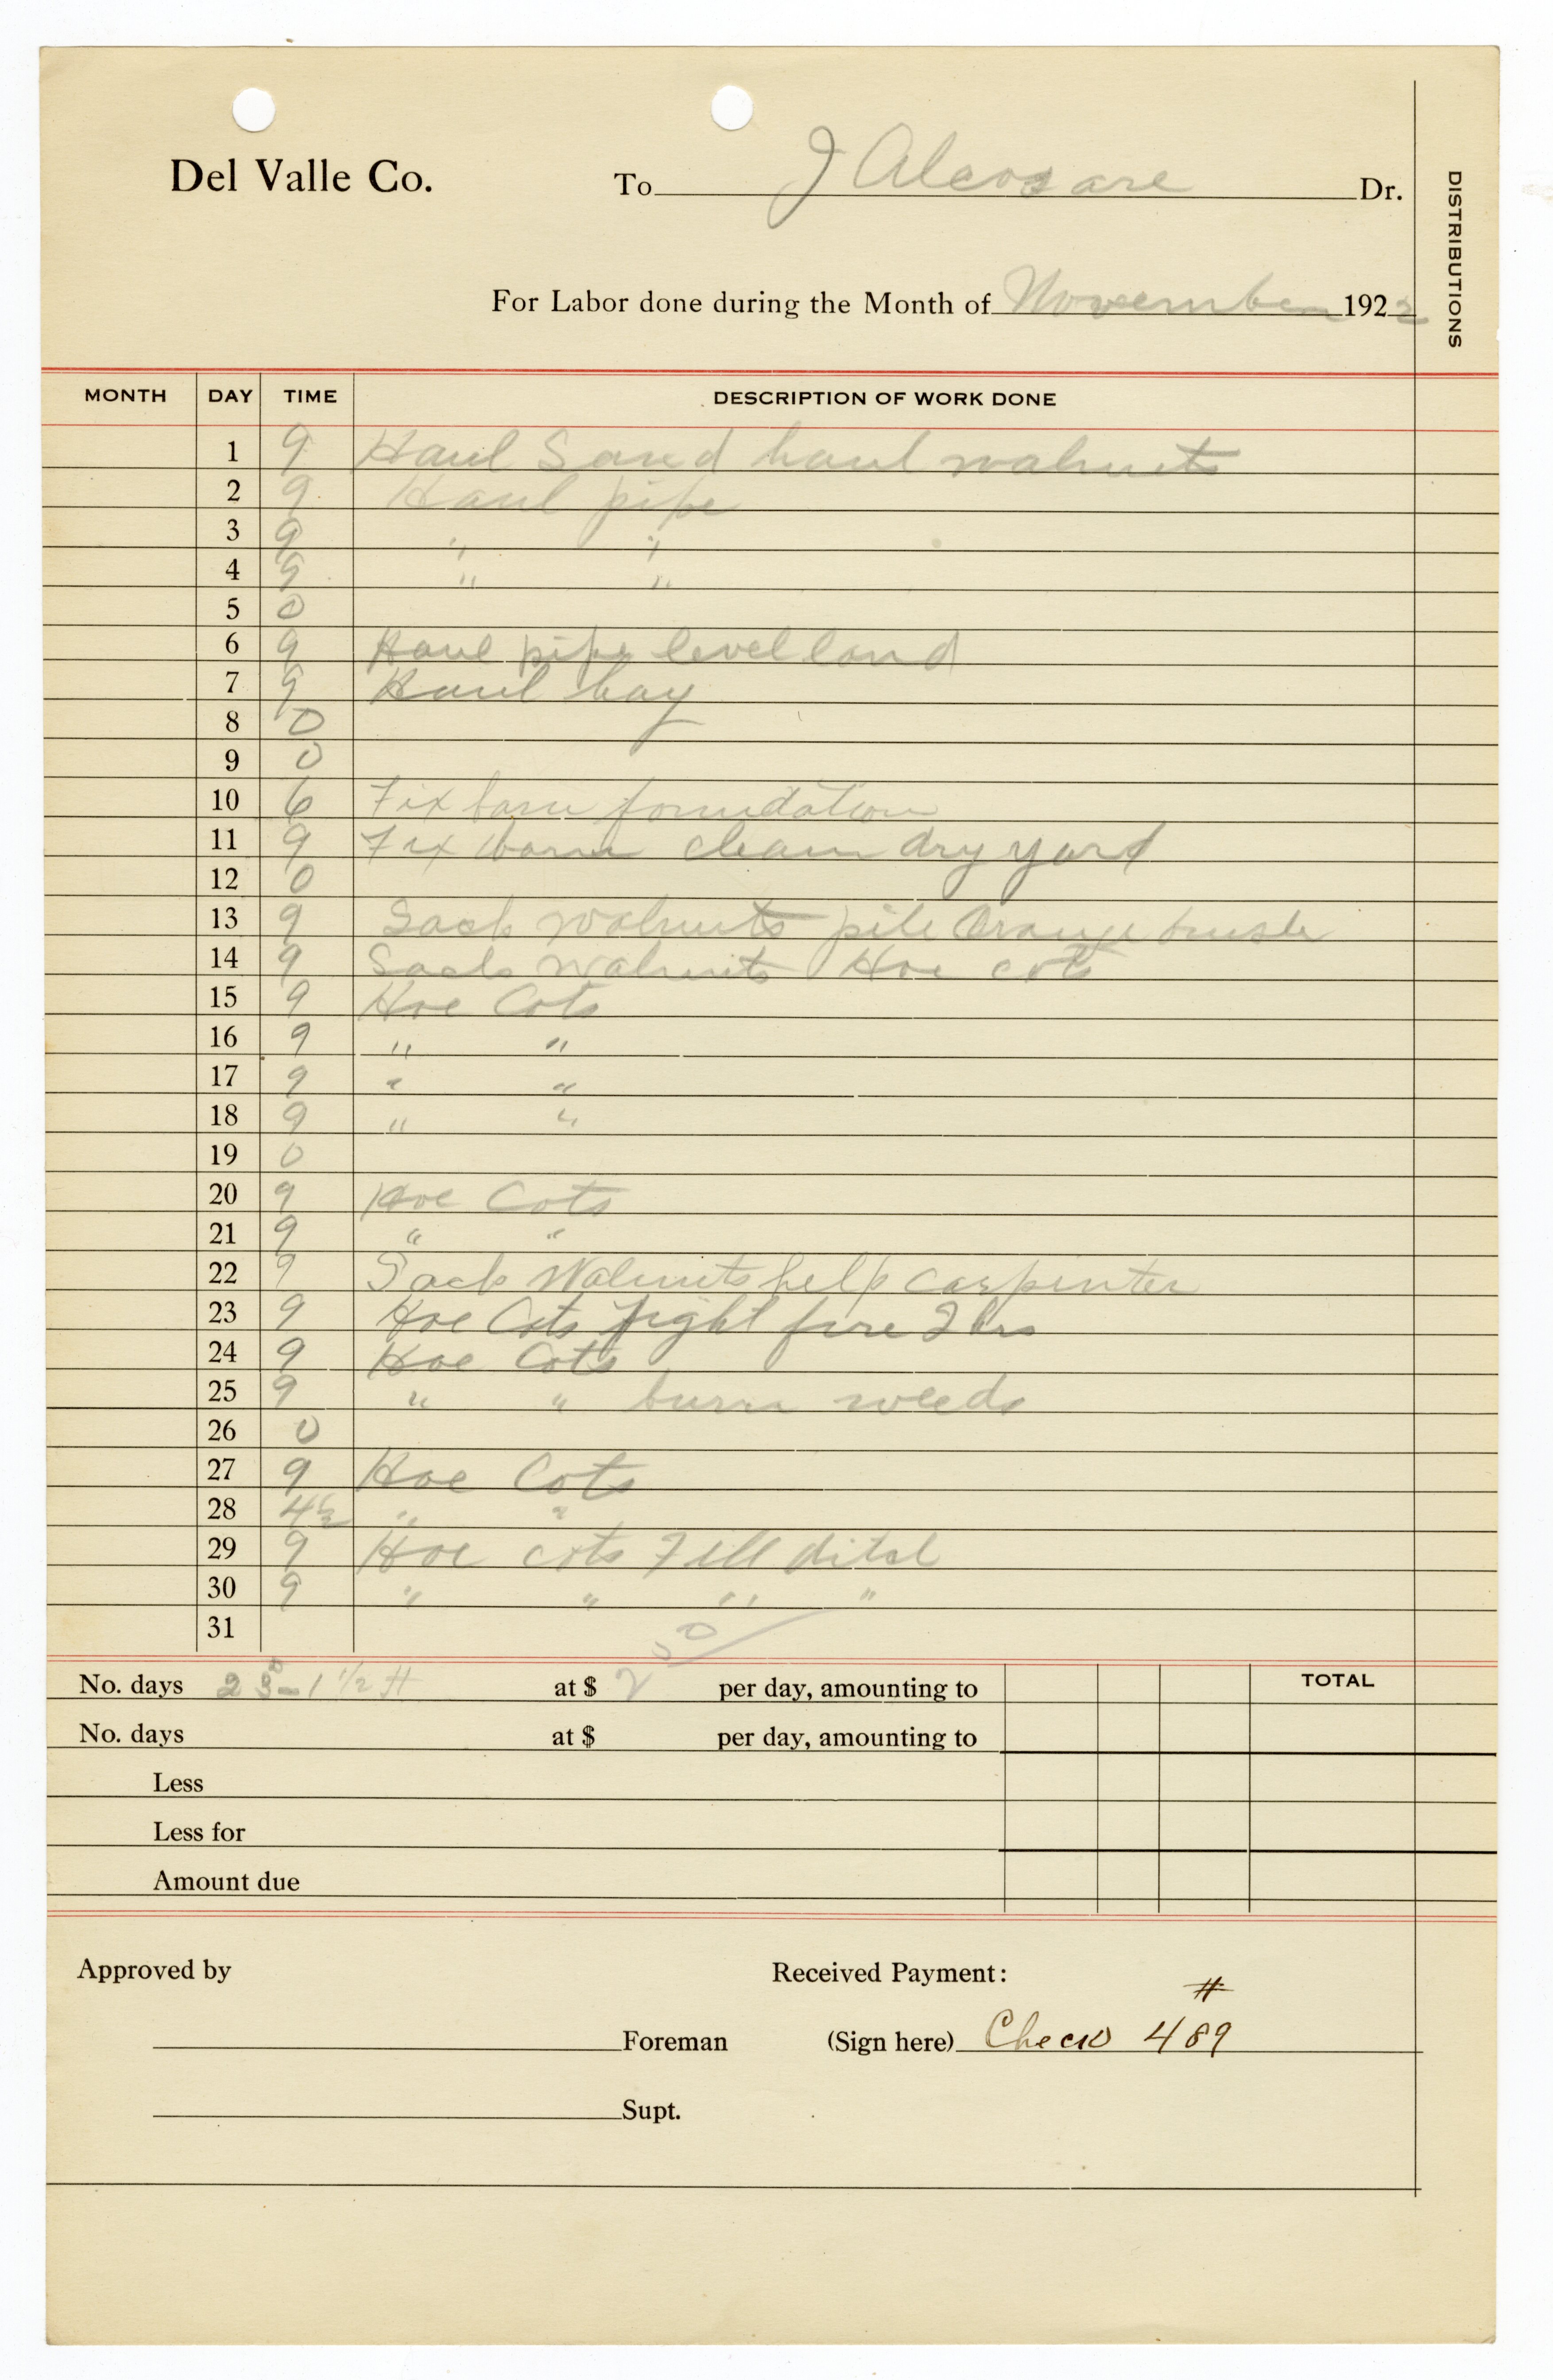 Del Valle Co. To J Alcosare Dr.
DISTRIBUTIONS
For Labor done during the Month of November 1922
MONTH DAY TIME DESCRIPTION OF WORK DONE
1 9 Haul Sand haul walnuts
2 9 Haul pipe
3 9 " "
4 9 " "
5 0
6 9 Haul pipe level land
7 9 Haul hay
8 0
9 0
10 6 Fix barn foundation
11 9 Fix barn clean dry yard
12 0
13 9 Sack walnuts pile Orange brush
14 9 Sack walnuts Hoe cots
15 9 Hoe Cots
16 9 " "
17 9 " "
18 9 " "
19 0
20 9 Hoe Cots
21 9 " "
22 9 Sack Walnuts help carpenter
23 9 Hoe Cots fight fire 2 hrs
24 9 Hoe Cots
25 9 " " burn weeds
26 0
27 9 Hoe Cots
28 4½ " "
29 9 Hoe cots Fill ditch
30 9 " " " "
31
No. days 23 - 1 1/2 H at $ 2 50 per day, amounting to TOTAL
No. days at $ per day, amounting to
Less
Less for
Amount due
Approved by Received Payment:
Foreman (Sign here) Check # 489
Supt.